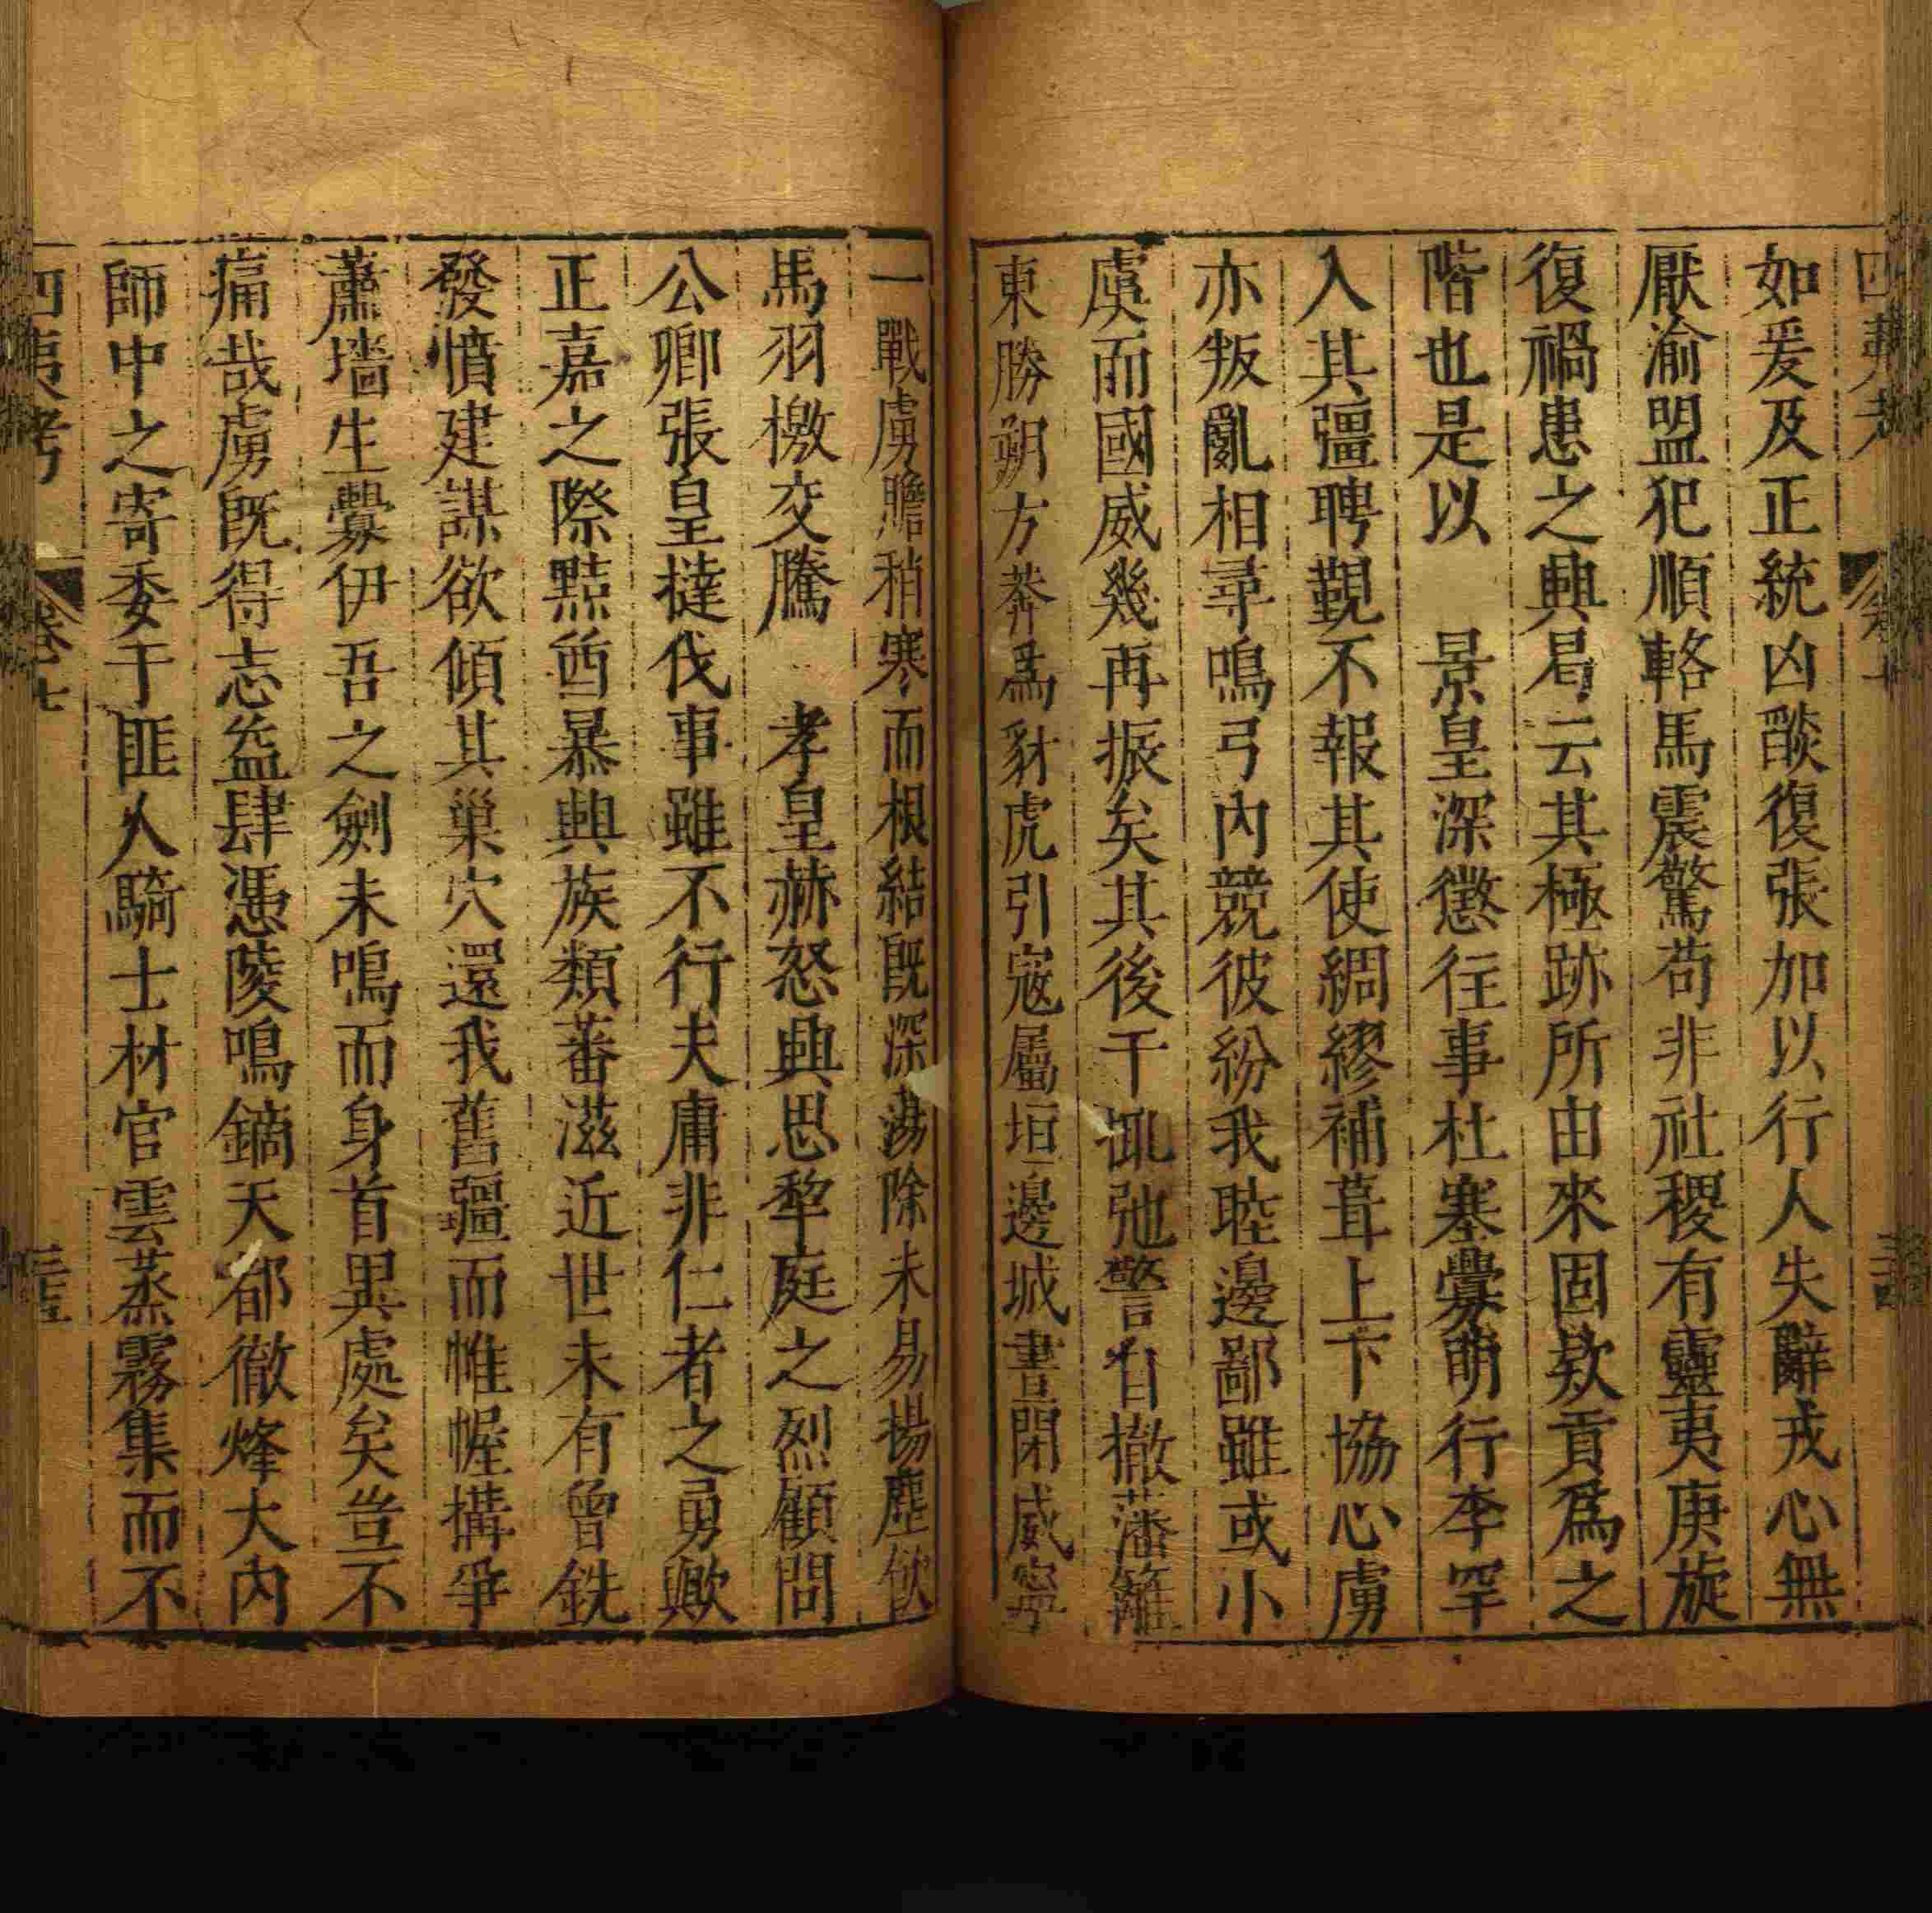 四夷考 卷七 三十四
如爰及正統凶燄復張加以行人失辭戎心無
厭渝盟犯順輅馬震驚苟非社稷有靈夷庚旋
復禍患之興曷云其極跡所由來固欵貢為之
階也是以 景皇深懲往事杜塞釁萌行李罕
入其彊聘覲不報其使綢繆補葺上下協心虜
亦叛亂相尋鳴弓內競彼紛我睦邊鄙雖或小
虞而國威幾再振矣其後干掫弛警自撤藩籬
東勝朔方莽為豺虎引寇屬垣邊城晝閉威寧
一戰虜膽稍寒而根結既深蕩除未易揚塵飲
馬羽檄交騰 孝皇赫怒興思犂庭之烈顧問
公卿張皇撻伐事雖不行夫庸非仁者之勇歟
正嘉之際黠酋暴興族類蕃滋近世未有曾銑
發憤建謀欲傾其巢穴還我舊疆而帷幄搆爭
蕭墻生釁伊吾之劍未鳴而身首異處矣豈不
痛哉虜既得志益肆憑陵鳴鏑天都徹烽大內
師中之寄委于匪人騎士材官雲蒸霧集而不
四夷考 卷七 三十五